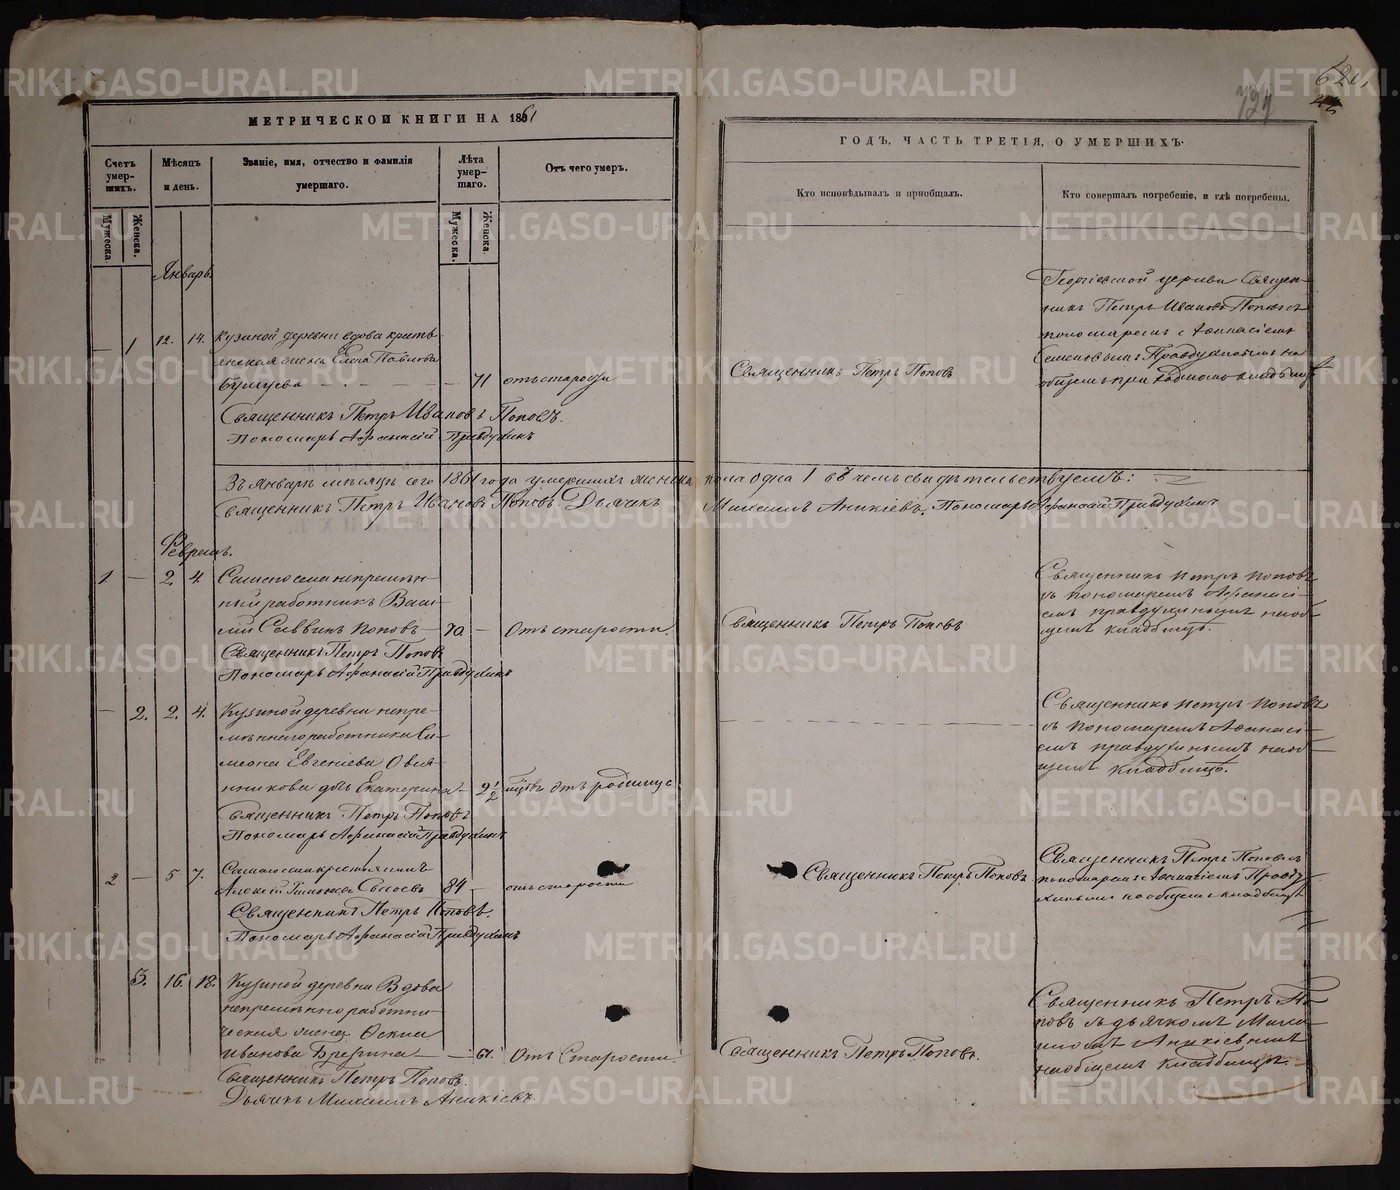 МЕТРИЧЕСКОЙ КНИГИ НА 1861
ГОДЪ, ЧАСТЬ ТРЕТІЯ, О УМЕРШИХЪ.
Счетъ умер-шихъ.
Мѣсяцъ и день.
Званіе, имя, отчество и фамилія умершаго.
Лѣта умер-шаго.
Отъ чего умеръ.
Кто исповѣдывалъ и пріобщалъ.
Кто совершалъ погребеніе, и гдѣ погребены.
Мужеска.
Женска.
Мужеска.
Женска.
Январь.
1 12. 14. Кузиной деревни вдова кресть-
янская жена Елена Павлова
71 отъ старости
Священникъ Петръ Иванов Попов.
Пономарь Афанасій Правдухинъ
Священникъ Петръ Поповъ
Георгіевской церкви Священ-
никъ Петръ Ивановъ Поповъ съ
пономаремъ Афанасіемъ
Семеновымъ Правдухинымъ на
общемъ приходскомъ кладбищѣ
Въ Январѣ мѣсяцѣ сего 1861 года умершихъ женска пола одна 1 въ чемъ свидѣтельствуемъ:
Священникъ Петръ Иванов Попов. Дьячекъ Михаилъ Аникіевъ. Пономарь Афанасій Правдухинъ
Февраль.
1 — 2 4. Самого села непремѣн-
ный работникъ Васи-
лій Саввинъ Поповъ — 70 — Отъ старости.
Священникъ Петръ Попов
Пономарь Афанасій Правдухинъ
Священникъ Петръ Поповъ
Священникъ Петръ Поповъ
съ пономаремъ Афанасі-
емъ Правдухинымъ наоб-
щемъ кладбищѣ.
— 2. 2. 4. Кузиной деревни непре-
мѣннаго работника Си-
меона Евгеніева Овчи-
нникова дочь Екатерина 2 1/2
Священникъ Петръ Поповъ
Пономарь Афанасій Правдухинъ
Священникъ Петръ Поповъ
съ Пономаремъ Афанасі-
емъ Правдухинымъ наоб-
щемъ кладбищѣ.
2 — 5 7. Самаго села крестьянинъ
Алексій 84 — отъ старости
Священникъ Петръ Поповъ.
Пономарь Афанасій Правдухинъ
Священникъ Петръ Поповъ
Священникъ Петръ Поповъ съ
пономаремъ Афанасіемъ Правду-
хинымъ на общемъ кладбищѣ
3. 16. 18. Кузиной деревни Вдова
непремѣнно работни-
ческая жена
Иванова — 61. Отъ Старости.
Священникъ Петръ Попов.
Дьячекъ Михаилъ Аникіевъ.
Священникъ Петръ Попов.
Священникъ Петръ По-
повъ съ дьячкомъ Миха-
иломъ Аникіевымъ
на общемъ кладбищѣ.
METRIKI.GASO-URAL.RU